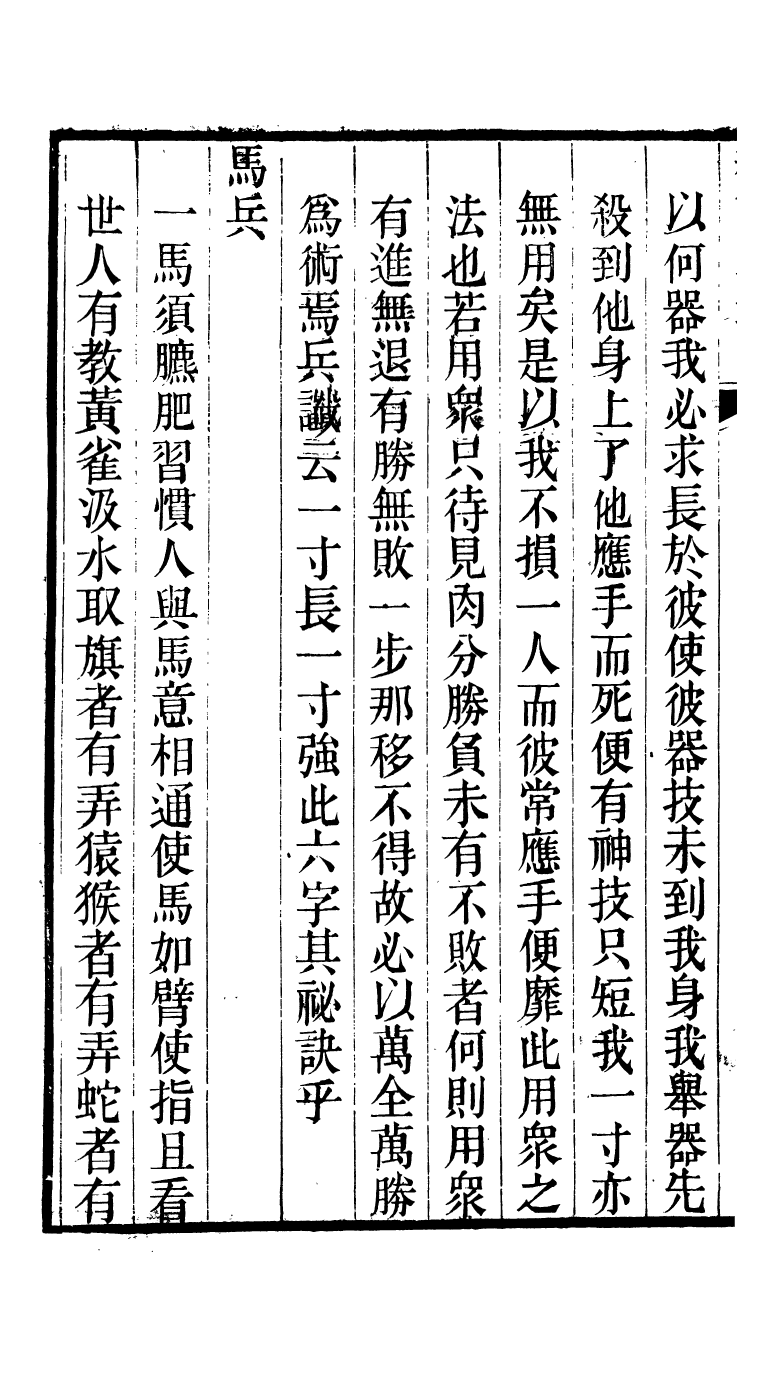 以何器我必求長於彼使彼器技未到我身我舉器先
殺到他身上了他應手而死便有神技只短我一寸亦
無用矣是以我不損一人而彼常應手便靡此用衆之
法也若用衆只待見肉分勝負未有不敗者何則用衆
有進無退有勝無敗一步那移不得故必以萬全萬勝
爲術焉兵讖云一寸長一寸強此六字其祕訣乎
馬兵
一馬須臕肥習慣人與馬意相通使馬如臂使指且看
世人有教黃雀汲水取旗者有弄猿猴者有弄蛇者有